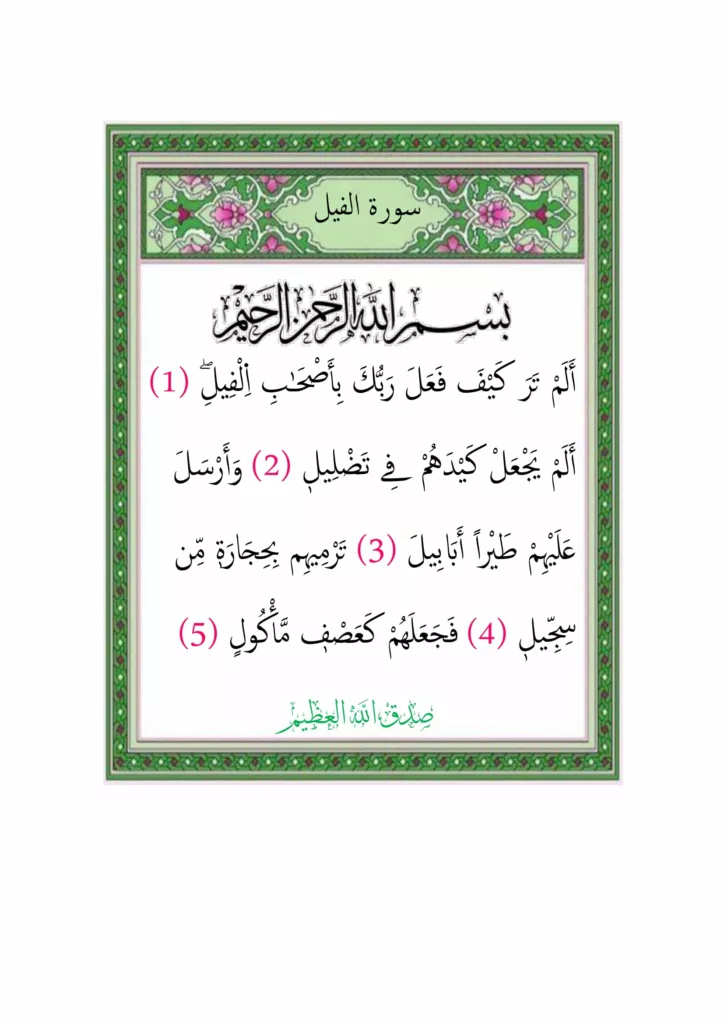 سورة الفيل
بسم الله الرحمن الرحيم
أَلَمْ تَرَ كَيْفَ فَعَلَ رَبُّكَ بِأَصْحَٰبِ اِ۬لْفِيلِۖ (1)
أَلَمْ يَجْعَلْ كَيْدَهُمْ فِے تَضْلِيلٖ (2) وَأَرْسَلَ
عَلَيْهِمْ طَيْراً أَبَابِيلَ (3) تَرْمِيهِم بِحِجَارَةٖ مِّن
سِجِّيلٖ (4) فَجَعَلَهُمْ كَعَصْفٖ مَّأْكُولٍ (5)
صدق الله العظيم